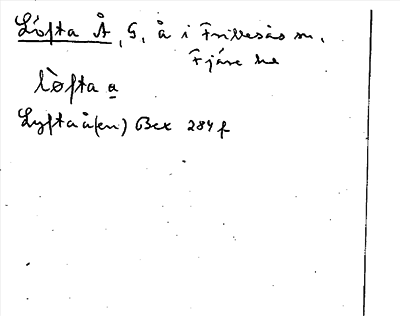 Löfta Å, G, å i Fribesås sn,
Fjäre hd
lòfta a
Lyftaå(en) Bex 284 f